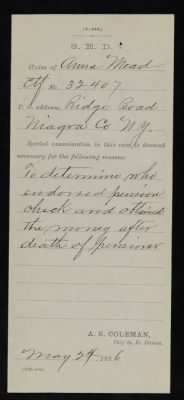 S. E. D.
Claim of Anna Mead
Ctf No. 32-407.
P. O. address, Ridge Road
Niagra Co N.Y.
Special examination in this case is deemed
necessary for the following reasons:
To determine who
endorsed pension
check and obtained
the money after
death of pensioner
A. R. COLEMAN,
Chief Sp. Ex. Division.
May 24, 1886